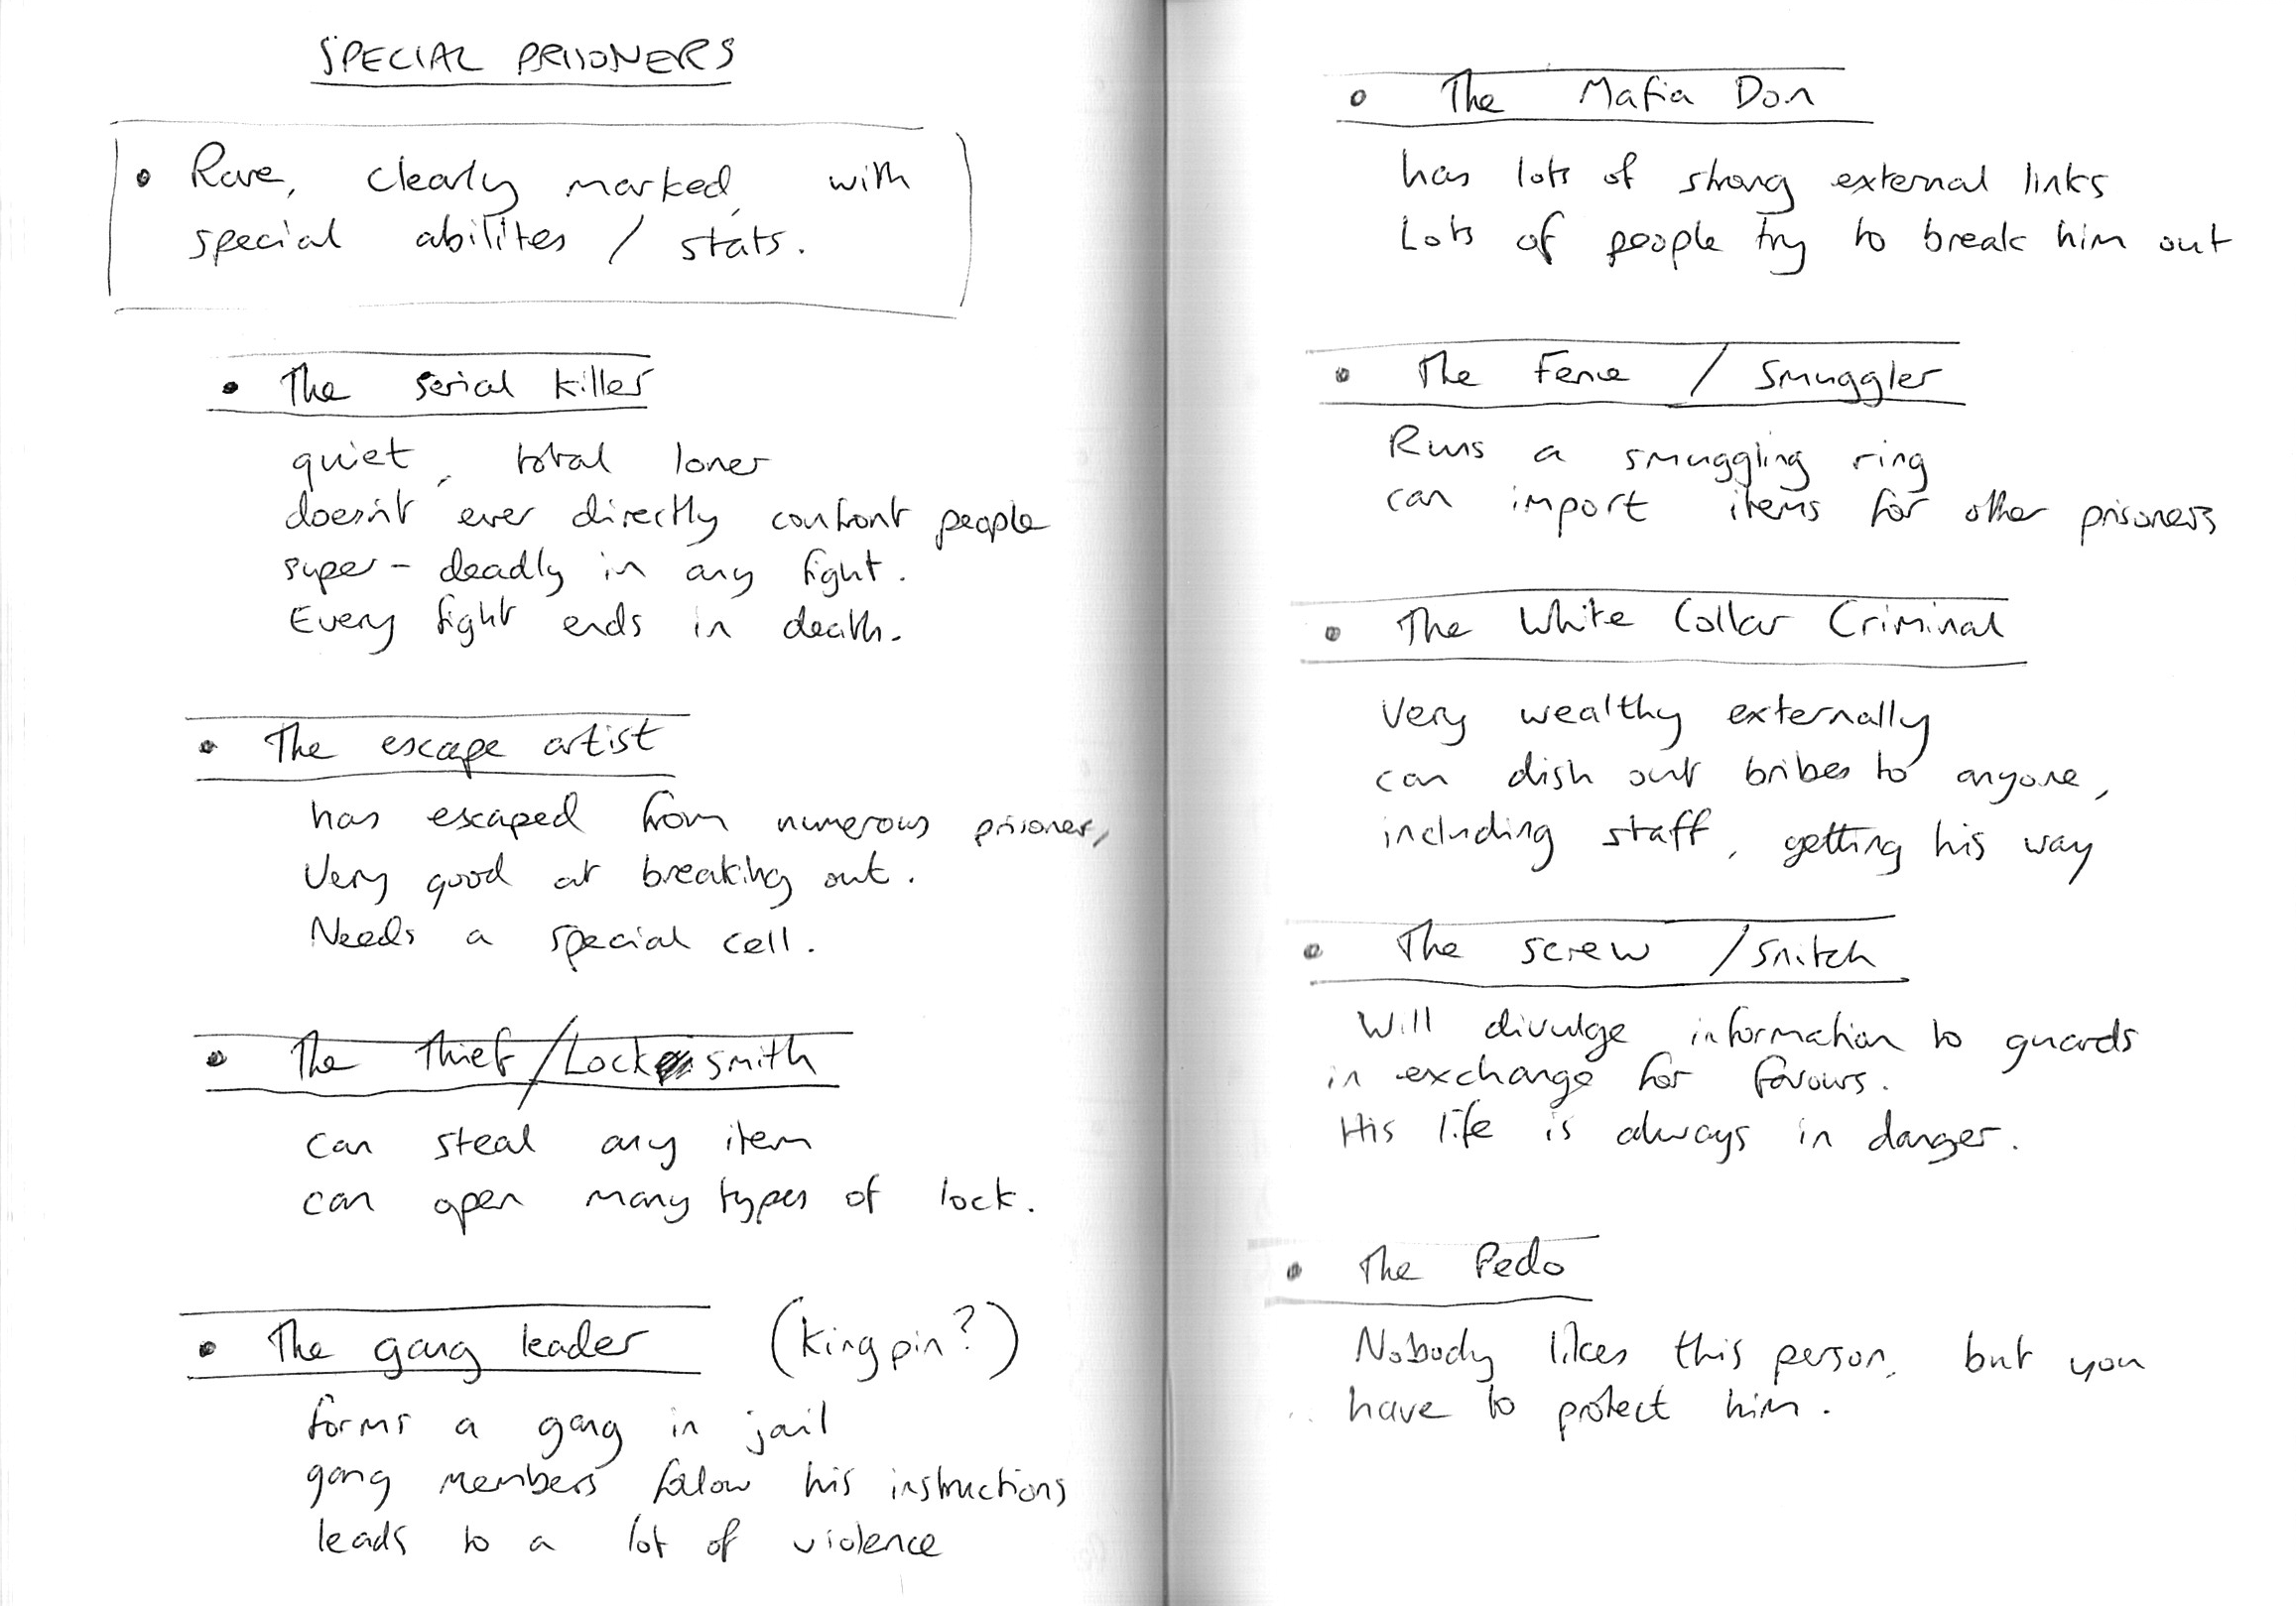 SPECIAL PRISONERS
• Rare, clearly marked, with
special abilites / stats.
• The serial killer
quiet, total loner
doesn't ever directly confront people
super-deadly in any fight.
Every fight ends in death.
• The escape artist
has escaped from numerous prisoner,
Very good at breaking out.
Needs a special cell.
• The Thief / Locksmith
can steal any item
can open many types of lock.
• The gang leader (kingpin?)
forms a gang in jail
gang members follow his instructions
leads to a lot of violence
• The Mafia Don
has lots of strong external links
Lots of people try to break him out
• The Fence / Smuggler
Runs a smuggling ring
can import items for other prisoners
• The White Collar Criminal
Very wealthy externally
can dish out bribes to anyone,
including staff, getting his way
• The screw / snitch
Will divulge information to guards
in exchange for favours.
His life is always in danger.
• The Pedo
Nobody likes this person, but you
have to protect him.